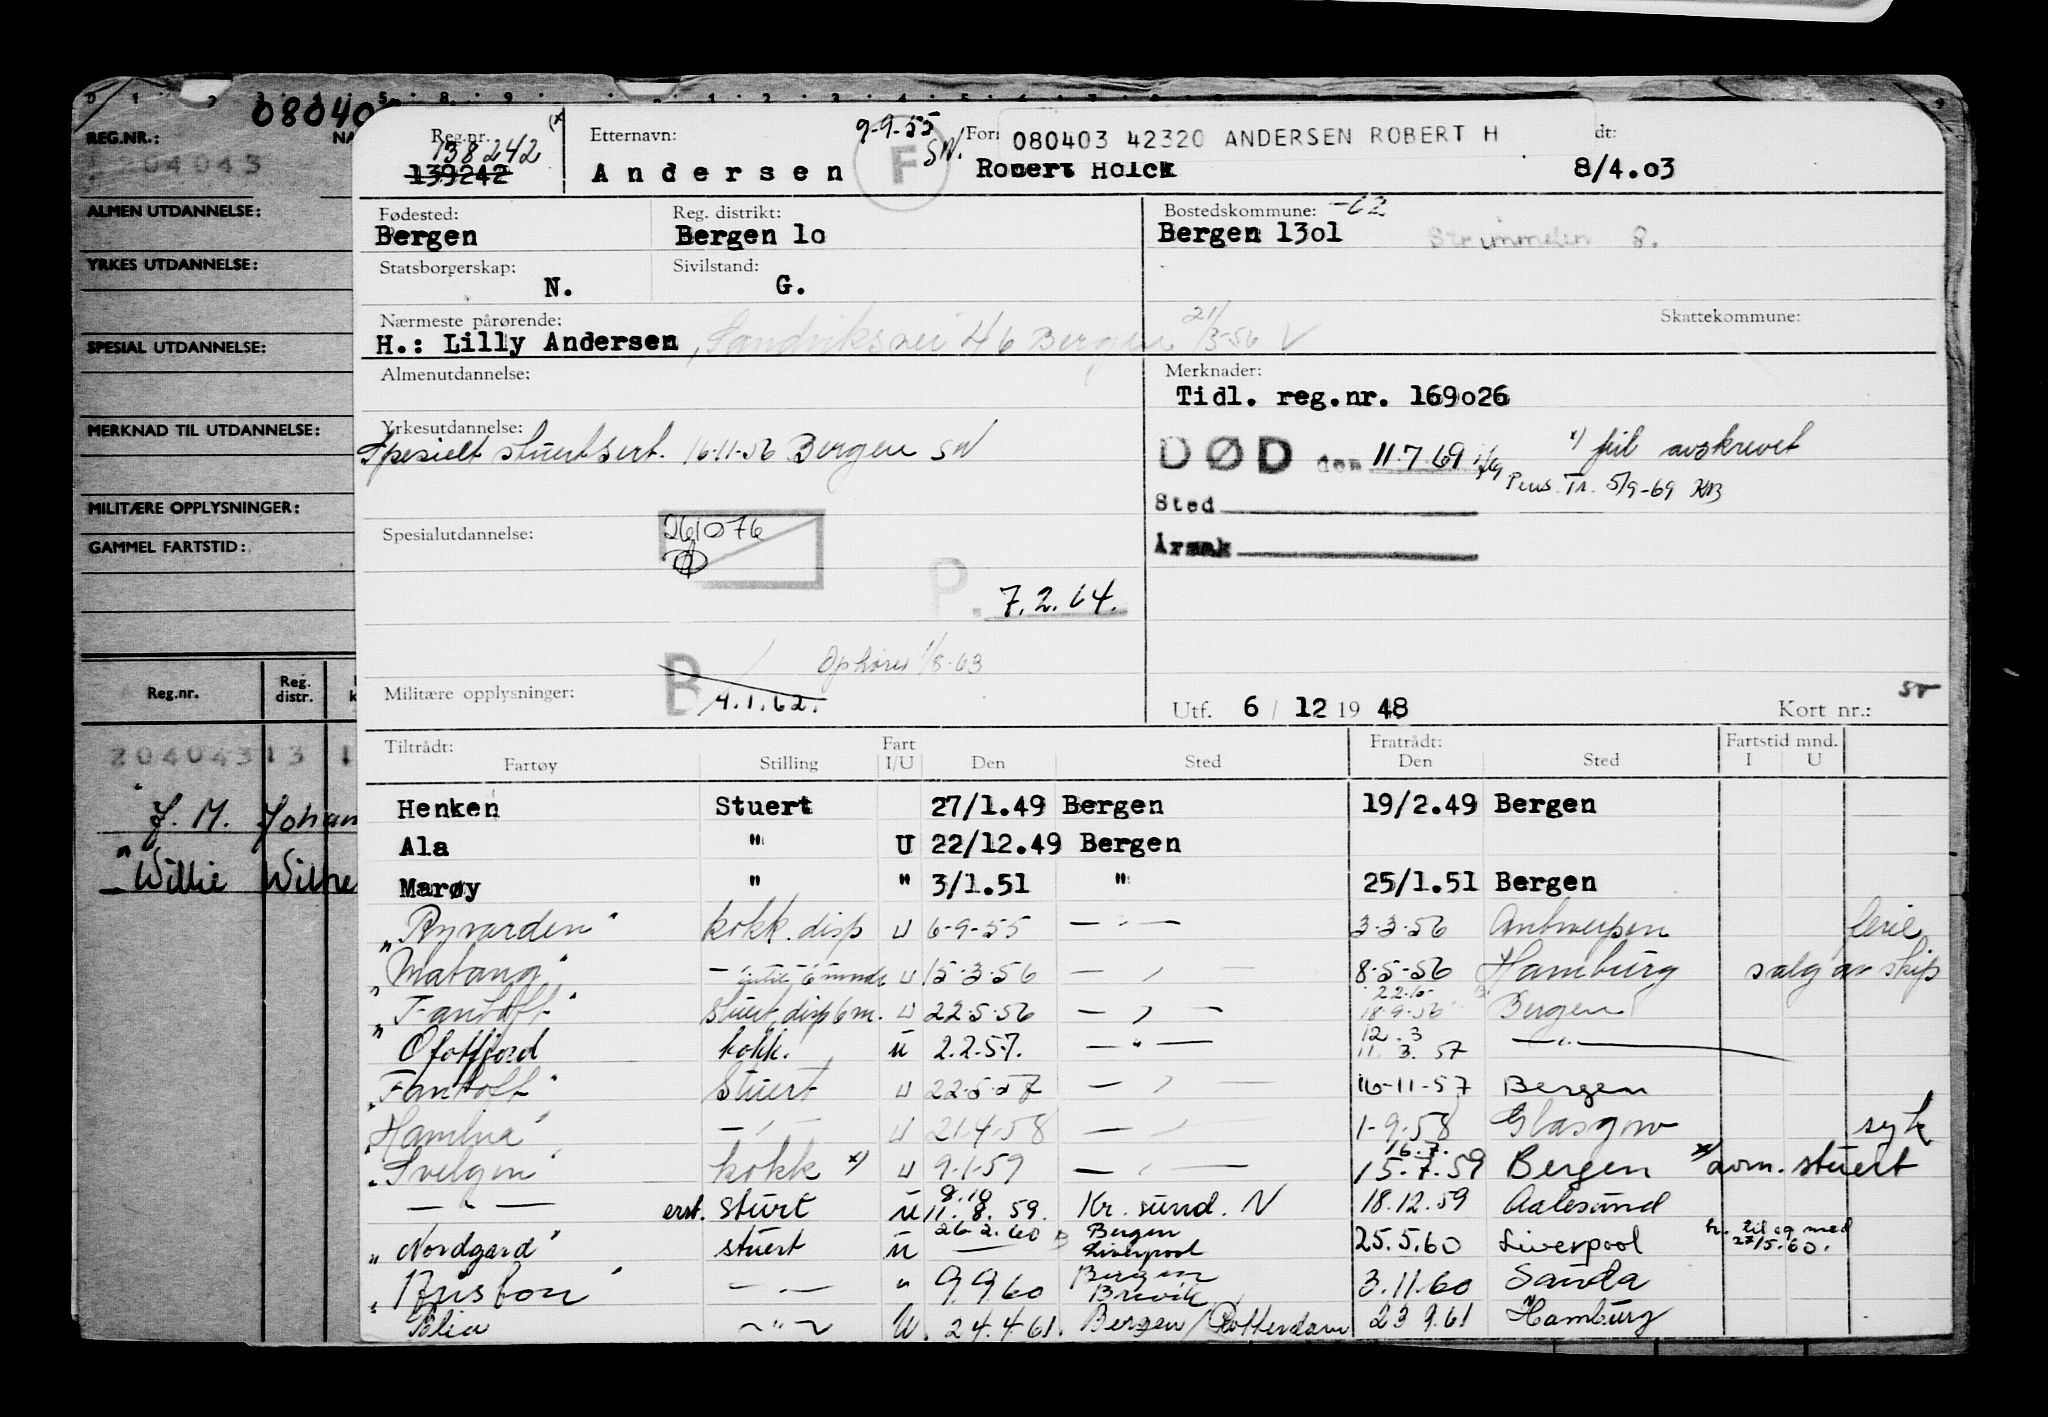 08040
REG.NR.:
204043
ALMEN UTDANNELSE:
YRKES UTDANNELSE:
SPESIAL UTDANNELSE:
MERKNAD TIL UTDANNELSE:
MILITÆRE OPPLYSNINGER:
GAMMEL FARTSTID:
Reg.nr. Reg. distr.
20404313 1
J. M. Johan
Willie Wilhe
Reg.nr. 138242 139242
Etternavn: 9-9-55 SW. 080403 42320 ANDERSEN ROBERT H
Andersen F Robert Holck 8/4.03
Fødested: Reg. distrikt: Bostedskommune: -62
Bergen Bergen 1o Bergen 13o1 Strimmelen 8.
Statsborgerskap: Sivilstand:
N. G.
Nærmeste pårørende: 21/3-56 V Skattekommune:
H.: Lilly Andersen, Sandviksvei 46 Bergen
Almenutdannelse: Merknader:
Tidl. reg.nr. 169o26
Yrkesutdannelse:
Spesielt stuertsert. 16-11-56 Bergen SW
DØD den 11.7.69 x) feil avskrevet
Pens. Tr. 5/9-69 KB
Sted
Årsak
Spesialutdannelse: 261076
P. 7.2.64.
B Ophører 1/8-63
Militære opplysninger: 4.1.62.
Utf. 6 / 12 19 48 Kort nr.:
Tiltrådt: Fart Fratrådt: Fartstid mnd.
Fartøy Stilling I/U Den Sted Den Sted I U
Henken Stuert 27/1.49 Bergen 19/2.49 Bergen
Ala " U 22/12.49 Bergen
Marøy " " 3/1.51 " 25/1.51 Bergen
"Ryvarden" kokk. disp U 6-9-55 — " — 3-3-56 Antwerpen ferie
"Matang" — " — inntil 6 mndr U 15-3-56 — " — 8-5-56 Hamburg salg av skip
"Fantoft" stuert disp 6 m. U 22-5-56 — " — 22.10 18-9-56 Bergen
" Ofotfjord kokk. u 2.2.57. — " — 12.3 11.3.57 — " —
"Fantoft" Stuert U 22-5-57 — " — 16-11-57 Bergen
"Hamlua" — " — U 21-4-58 — " — 1-9-58 Glasgow syk
"Svelgen" kokk x) U 9-1-59 — " — 16.7. 15-7-59 Bergen x) avm. stuert
— " — erst. stuert u 8.10 11.8.59. Kr.sund. N 18.12.59 Aalesund
"Nordgard" stuert u 26.2.60 Bergen Liverpool 25.5.60 Liverpool h. til og med 27/5.60.
"Brisbon" — " — " 9.9.60 Bergen Brevik 3.11.60 Sauda
" Blia — " — U. 24.4.61. Bergen/Rotterdam 23 9.61 Hamburg